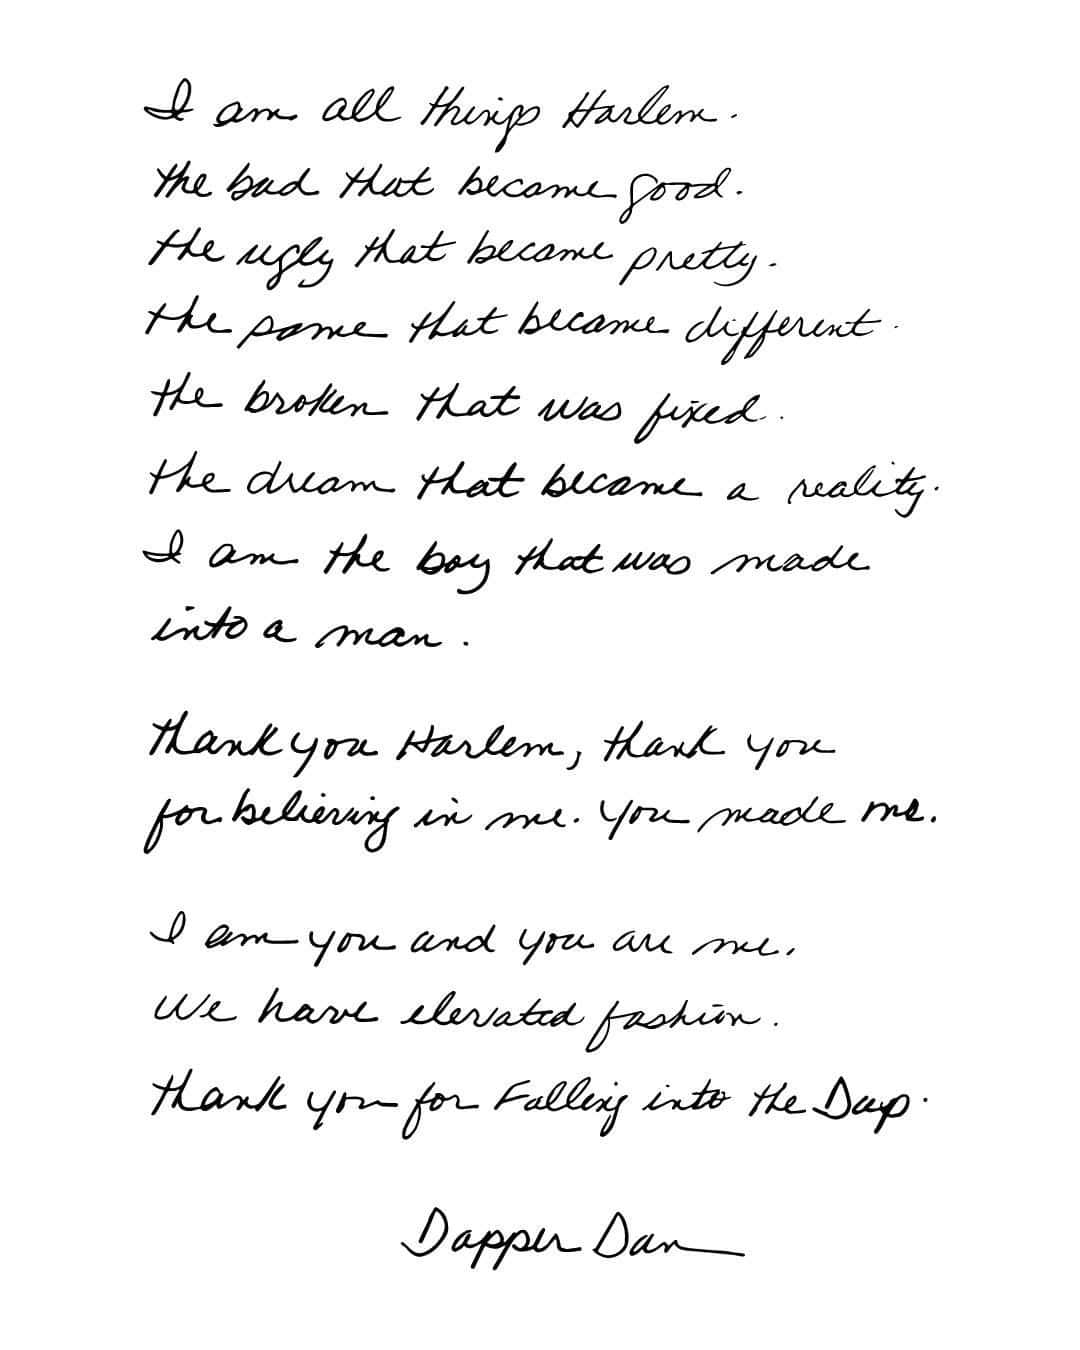 I am all things Harlem.
the bad that became good.
the ugly that became pretty.
the same that became different.
the broken that was fixed.
the dream that became a reality.
I am the boy that was made
into a man.
thank you Harlem, thank you
for believing in me. You made me.
I am you and you are me.
We have elevated fashion.
thank you for Falling into the Dap.
Dapper Dan